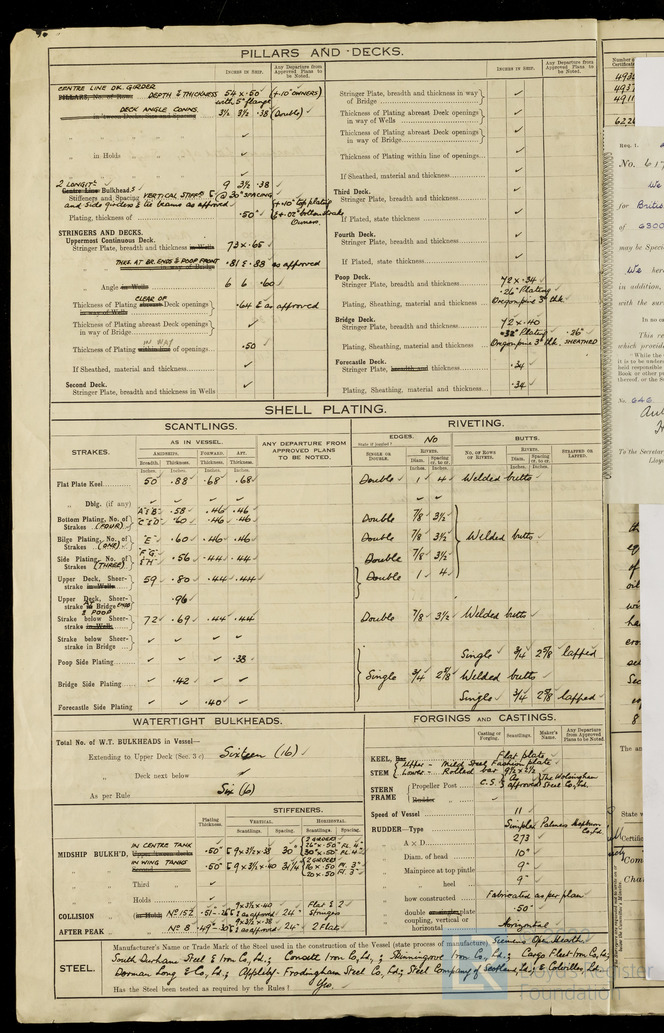 PILLARS AND DECKS.
INCHES IN SHIP.
Any Departure from Approved Plans to be Noted.
CENTRE LINE DK. GIRDER
PILLARS, No. of Rows DEPTH & THICKNESS 54 x .50 (+.10" OWNERS)
with 5" flange
DECK ANGLE CONNS. 3½ 3½ .38 (Double)
in 'tween Decks, Size and Spacing
in Holds
2 LONGITL
Centre Line Bulkheads 9 3½ .38
Stiffeners and Spacing VERTICAL STIFFS @ 30" SPACING
and side girders & tie beams as approved
Plating, thickness of .50"
+.10" top plating
&+.02" bottom strake
Owners.
STRINGERS AND DECKS.
Uppermost Continuous Deck.
Stringer Plate, breadth and thickness in Wells 73 x .65
THKS AT BR. ENDS & POOP FRONT .81 & .88 as approved
in way of Bridge
Angle in Wells 6 6 .60
CLEAR OF
Thickness of Plating abreast Deck openings in way of Wells .64 & as approved
Thickness of Plating abreast Deck openings in way of Bridge
IN WAY
Thickness of Plating within line of openings .50
If Sheathed, material and thickness
Second Deck.
Stringer Plate, breadth and thickness in Wells
INCHES IN SHIP.
Any Departure from Approved Plans to be Noted.
Stringer Plate, breadth and thickness in way of Bridge
Thickness of Plating abreast Deck openings in way of Wells
Thickness of Plating abreast Deck openings in way of Bridge
Thickness of Plating within line of openings
If Sheathed, material and thickness
Third Deck.
Stringer Plate, breadth and thickness
If Plated, state thickness
Fourth Deck.
Stringer Plate, breadth and thickness
If Plated, state thickness
Poop Deck.
Stringer Plate, breadth and thickness 72 x .34
.26" Plating
Plating, Sheathing, material and thickness Oregon pine 3" thk.
Bridge Deck.
Stringer Plate, breadth and thickness 72 x .40
.32" Plating .26"
Plating, Sheathing, material and thickness Oregon pine 3" thk. SHEATHED
Forecastle Deck.
Stringer Plate, breadth and thickness .34
Plating, Sheathing, material and thickness .34
SHELL PLATING.
SCANTLINGS.
RIVETING.
STRAKES.
AS IN VESSEL.
AMIDSHIPS. FORWARD. AFT.
Breadth. Thickness. Thickness. Thickness.
Inches. Inches. Inches. Inches.
ANY DEPARTURE FROM APPROVED PLANS TO BE NOTED.
EDGES. No
State if joggled?
SINGLE OR DOUBLE.
RIVETS.
Diam. Spacing cr. to cr.
Inches. Inches.
BUTTS.
NO. OF ROWS OF RIVETS.
RIVETS.
Diam. Spacing cr. to cr.
Inches. Inches.
STRAPPED OR LAPPED.
Flat Plate Keel 50 .88 .68 .68 Double 1 4 Welded butts
„ Dblg. (if any)
Bottom Plating, No. of Strakes (FOUR) A & B .58 .46 .46
C & D .60 .46 .46 Double 7/8 3½
Bilge Plating, No. of Strakes (ONE) "E" .60 .46 .46 Double 7/8 3½ Welded butts
Side Plating, No. of Strakes (THREE) F G & H .56 .44 .44 Double 7/8 3½
Upper Deck, Sheerstrake in Wells 59 .80 .44 .44 Double 1 4
Upper Deck, Sheerstrake in Bridge ENDS & POOP .96
Strake below Sheerstrake in Wells 72 .69 .44 .44 Double 7/8 3½ Welded butts
Strake below Sheerstrake in Bridge
Poop Side Plating .38 Single 3/4 2 5/8 lapped
Bridge Side Plating .42 Single 3/4 2 5/8 Welded butts
Forecastle Side Plating .40 Single 3/4 2 5/8 lapped
WATERTIGHT BULKHEADS.
Total No. of W.T. BULKHEADS in Vessel—
Extending to Upper Deck (Sec. 3 c) Sixteen (16)
„ Deck next below
As per Rule Six (6)
Plating Thickness.
STIFFENERS.
VERTICAL. HORIZONTAL.
Scantlings. Spacing. Scantlings. Spacing.
MIDSHIP BULKH'D, IN CENTRE TANK .50" 9 x 3½ x .38 30"
IN WING TANKS .50" 9 x 3½ x .40 34¼
„ Third „
„ Holds
COLLISION (in Hold) No 152 .51-.26 9 x 3½ x .40 & as approved 24" Flat & 2 Stringers
AFTER PEAK No 8 .49-.30 9 x 3½ x .38 & as approved 24" 2 Flats
FORGINGS AND CASTINGS.
Casting or Forging.
Scantlings.
Maker's Name.
Any Departure from Approved Plans to be Noted.
KEEL, Bar Flat plate
STEM Upper - Mild Steel Fashion plate
Lower - Rolled bar 9½ x 2½
STERN FRAME Propeller Post C.S. & As approved The Wolsingham Steel Co, Ld.
Rudder „
Speed of Vessel 11
RUDDER—Type Simplex Palmers Hebburn Co, Ld.
A × D 273
Diam. of head 10"
Mainpiece at top pintle 9"
„ heel 9"
how constructed Fabricated as per plan
double or single plate .50"
coupling, vertical or horizontal Horizontal
STEEL.
Manufacturer's Name or Trade Mark of the Steel used in the construction of the Vessel (state process of manufacture). Siemens Open Hearth
South Durham Steel & Iron Co, Ld.; Consett Iron Co, Ld.; Skinningrove Iron Co., Ld.; Cargo Fleet Iron Co, Ld;
Dorman Long & Co, Ld.; Appleby-Frodingham Steel Co, Ld.; Steel Company of Scotland, Ld; & Colvilles, Ld.
Has the Steel been tested as required by the Rules? Yes.
Lloyd's Register
Foundation